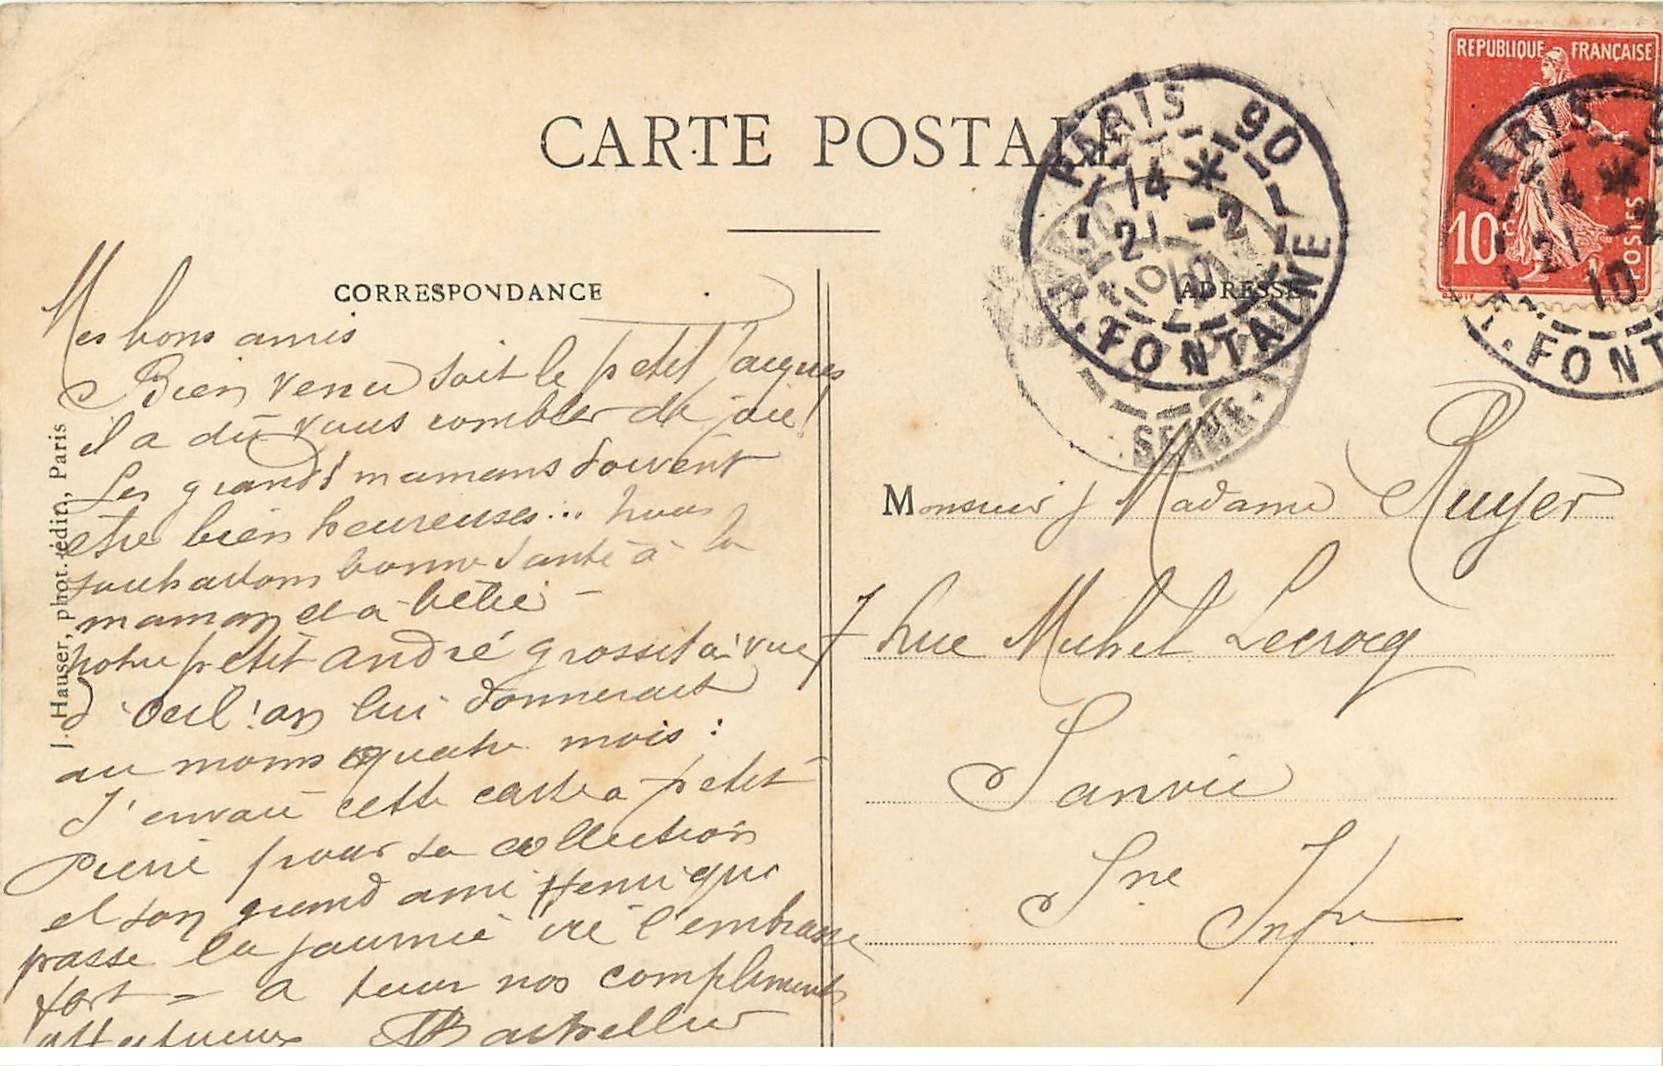 CARTE POSTALE
CORRESPONDANCE
ADRESSE
REPUBLIQUE FRANÇAISE
10c
POSTES
PARIS 90
14 * 
21 -2
10
R. FONTAINE
PARIS 9
14 *
21 -2
10
R. FONT
SEINE
J. Hauser, phot.-édit., Paris
Mes bons amis
Bien venu soit le petit Jacques
il a dû vous combler de joie!
Les grands mamans doivent
être bien heureuses... nous
souhaitons bonne santé à la
maman et à bébé
notre petit andré grossit à vue
d'oeil on lui donnerait
au moins quatre mois:
J'envoie cette carte a petit
Pierre pour sa collection
et son grand ami Henri qui
passe la journée ici l'embrasse
fort = a tous nos compliments
affectueux
Monsieur & Madame Ruyer
7 Rue Michel Lecrocq
Sanvic
Sne Infre